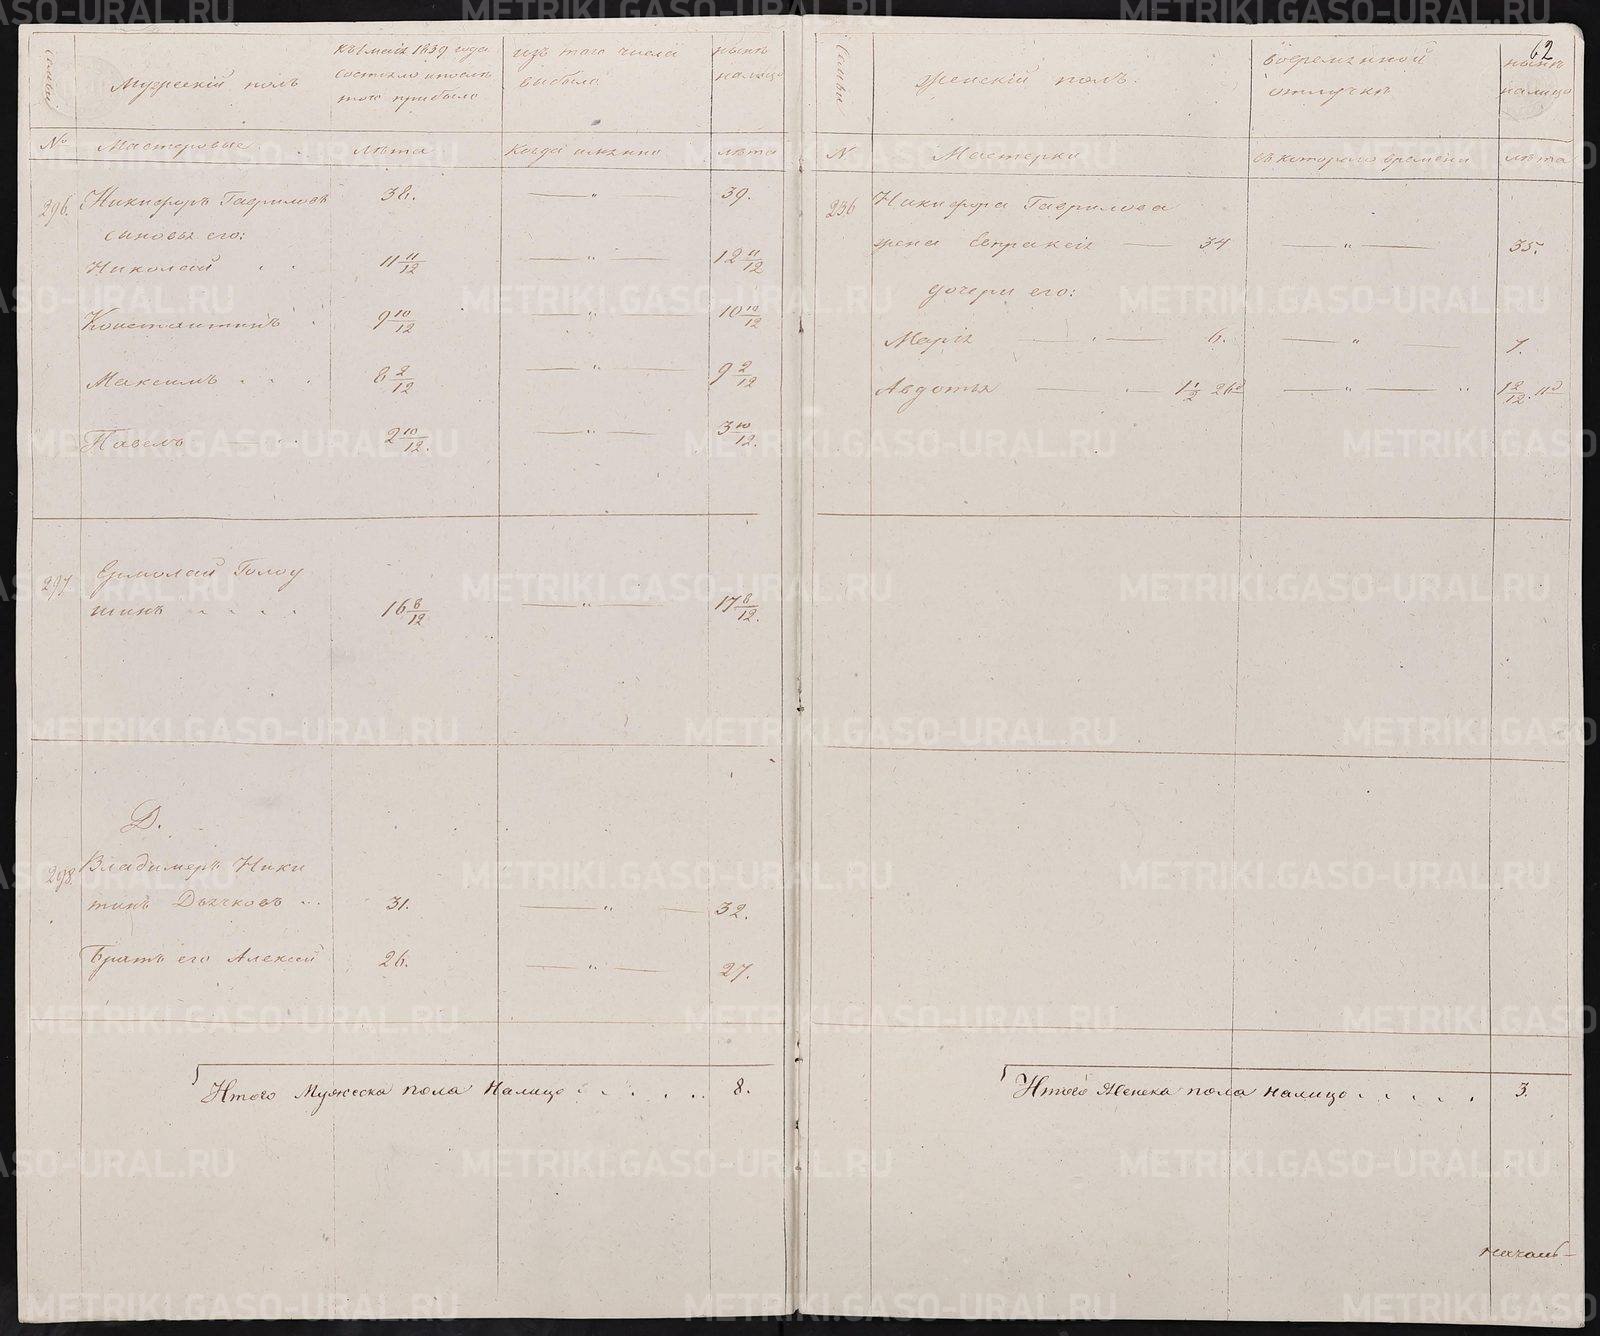 Семьи
Мужескій полъ
Къ 1 маія 1839 года
состояло и после
того прибыло
изъ того числа
выбыло
ныне
налицо
№
Мастеровые
лѣта
Когда именно
лѣта
296. Никифоръ Гавриловъ 38. — „ — 39.
сыновья его:
Николай . . 11 11/12 — „ — 12 11/12
Константинъ . 9 10/12 — „ — 10 10/12
Максимъ . . . 8 2/12 — „ — 9 2/12
Павелъ — . . 2 10/12. — „ — 3 10/12.
297. Ермолай Голоу
шинъ . . . . 16 8/12 — „ — 17 8/12.
Д.
298. Владимеръ Ники
тинъ Дьячковъ ... 31. — „ — 32.
Братъ его Алексей 26. — „ — 27.
Итого Мужеска пола налицо . . . . . . 8.
62
Семьи
Женскій полъ.
Во временной
отлучкѣ
ныне
налицо
N
Мастерки
съ котораго времени
лѣта
296 Никифора Гаврилова
жена Евпраксія — 34 — „ — 35.
дочери его:
Марія — . — 6. — „ — 7.
Авдотья — . — 1 1/2 26д — „ — „ 1 2/12. 11д
Итого Женска пола налицо . . . . . 3.
METRIKI.GASO-URAL.RU